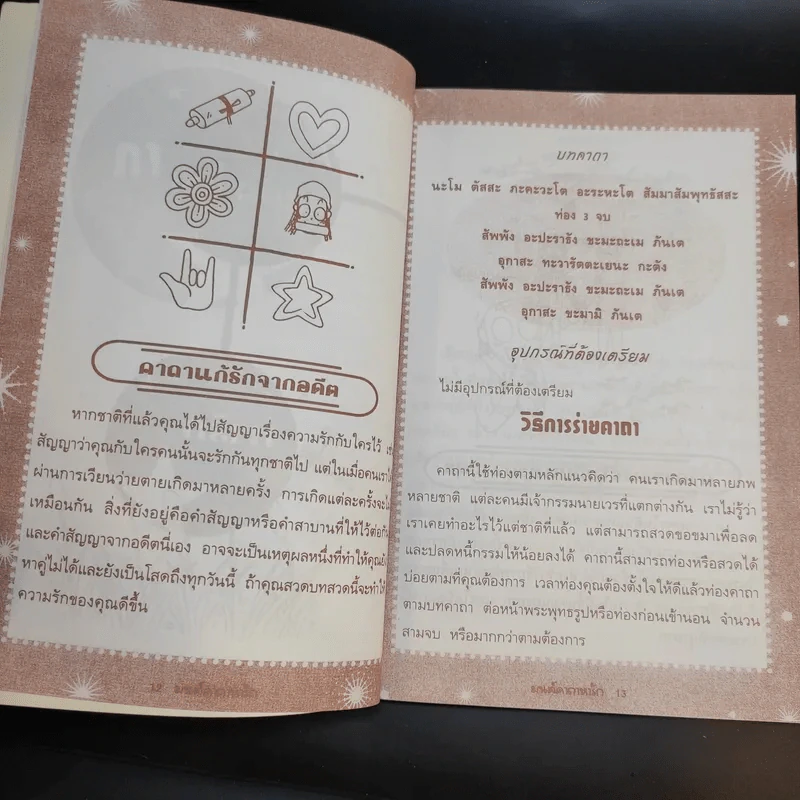 คาถาแก้รักจากอดีต
หากชาติที่แล้วคุณได้ไปสัญญาเรื่องความรักกับใครไว้
สัญญาว่าคุณกับใครคนนั้นจะรักกันทุกชาติไป แต่ในเมื่อคนเรา
ผ่านการเวียนว่ายตายเกิดมาหลายครั้ง การเกิดแต่ละครั้งจะ
เหมือนกัน สิ่งที่ยังอยู่คือคำสัญญาหรือคำสาบานที่ให้ไว้ต่อ
และคำสัญญาจากอดีตนี่เอง อาจจะเป็นเหตุผลหนึ่งที่ทำให้คุณ
หาคู่ไม่ได้และยังเป็นโสดถึงทุกวันนี้ ถ้าคุณสวดบทสวดนี้จะทำให้
ความรักของคุณดีขึ้น
12
บทคาถา
นะโม ตัสสะ ภะคะวะโต อะระหะโต สัมมาสัมพุทธัสสะ
ท่อง 3 จบ
สัพพัง อะปะราธัง ขะมะถะเม ภันเต
อุกาสะ ทะวารัตตะเยนะ กะตัง
สัพพัง อะปะราธัง ขะมะถะเม ภันเต
อุกาสะ ขะมามิ ภันเต
อุปกรณ์ที่ต้องเตรียม
ไม่มีอุปกรณ์ที่ต้องเตรียม
วิธีการร่ายคาถา
คาถานี้ใช้ท่องตามหลักแนวคิดว่า คนเราเกิดมาหลายภพ
หลายชาติ แต่ละคนมีเจ้ากรรมนายเวรที่แตกต่างกัน เราไม่รู้ว่า
เราเคยทำอะไรไว้แต่ชาติที่แล้ว แต่สามารถสวดขอขมาเพื่อลด
และปลดหนี้กรรมให้น้อยลงได้ คาถานี้สามารถท่องหรือสวดได้
บ่อยตามที่คุณต้องการ เวลาท่องคุณต้องตั้งใจให้ดีแล้วท่องคาถา
ตามบทคาถา ต่อหน้าพระพุทธรูปหรือท่องก่อนเข้านอน จำนวน
สามจบ หรือมากกว่าตามต้องการ
13